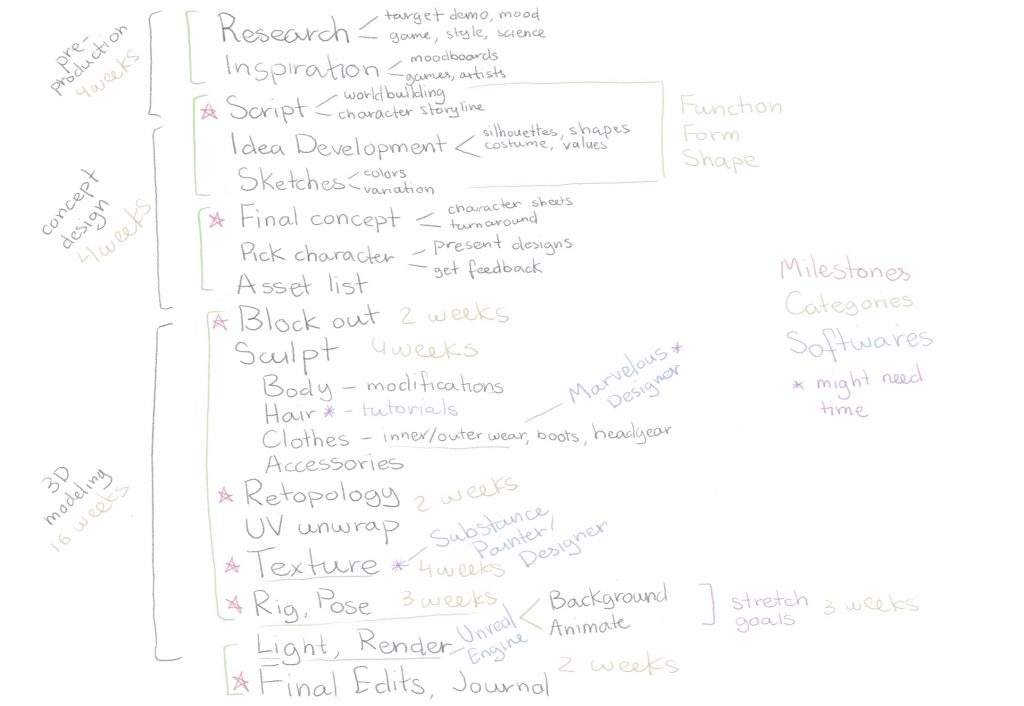 pre-
production
4 weeks
Research
target demo, mood
game, style, science
Inspiration
moodboards
games, artists
Script
worldbuilding
character storyline
Idea Development
silhouettes, shapes
costume, values
Sketches
colors
variation
Function
Form
Shape
concept
design
4 weeks
Final concept
character sheets
turnaround
Pick character
present designs
get feedback
Asset list
Milestones
Categories
Softwares
* might need
time
3D
modeling
16 weeks
Block out 2 weeks
Sculpt 4 weeks
Body - modifications
Hair * - tutorials
Marvelous *
Designer
Clothes - inner/outer wear, boots, headgear
Accessories
Retopology 2 weeks
UV unwrap
Texture *
Substance
Painter/
Designer
4 weeks
Rig, Pose 3 weeks
Light, Render
Unreal
Engine
Background
Animate
stretch
goals
3 weeks
Final Edits, Journal 2 weeks